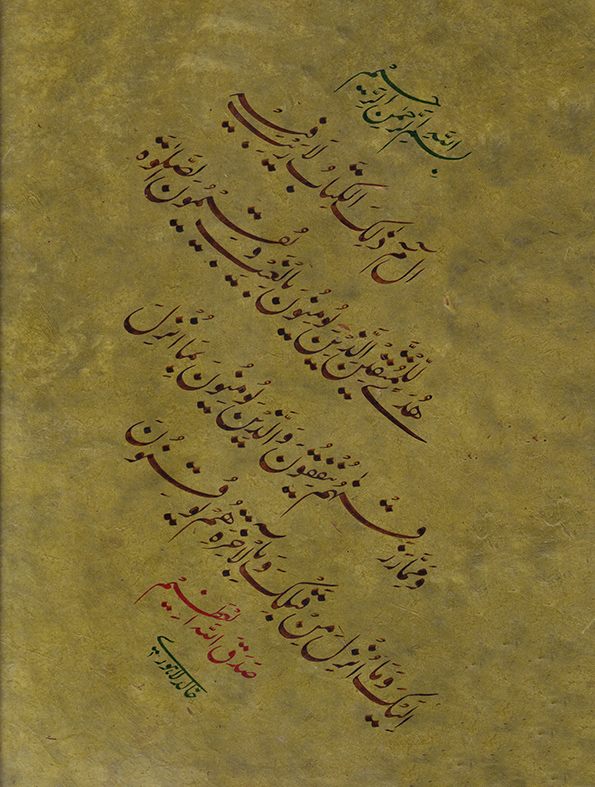 بِسْمِ اللَّهِ الرَّحْمٰنِ الرَّحِيْمِ
الٓمٓ ذٰلِكَ الْكِتَابُ لَا رَيْبَ فِيْهِ
هُدًى لِّلْمُتَّقِيْنَ الَّذِيْنَ يُؤْمِنُوْنَ بِالْغَيْبِ وَيُقِيْمُوْنَ الصَّلٰوةَ
وَمِمَّا رَزَقْنٰهُمْ يُنْفِقُوْنَ وَالَّذِيْنَ يُؤْمِنُوْنَ بِمَا اُنْزِلَ
اِلَيْكَ وَمَا اُنْزِلَ مِنْ قَبْلِكَ وَبِالْاٰخِرَةِ هُمْ يُوْقِنُوْنَ
صَدَقَ اللَّهُ الْعَظِيْمُ
خالد لاہوری